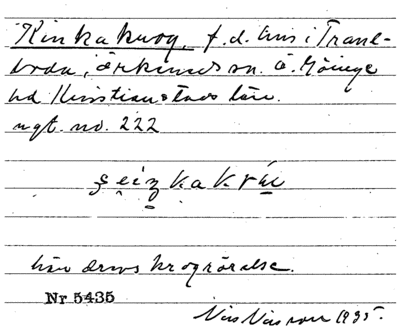 Kinkakrog, f.d. hus i Trane-
boda, Örkeneds sn. Ö. Göinge
hd Kristianstads län.
ngt. no. 222
här drevs krogrörelse.
Nr 5435
Nils Nilsson 1935.